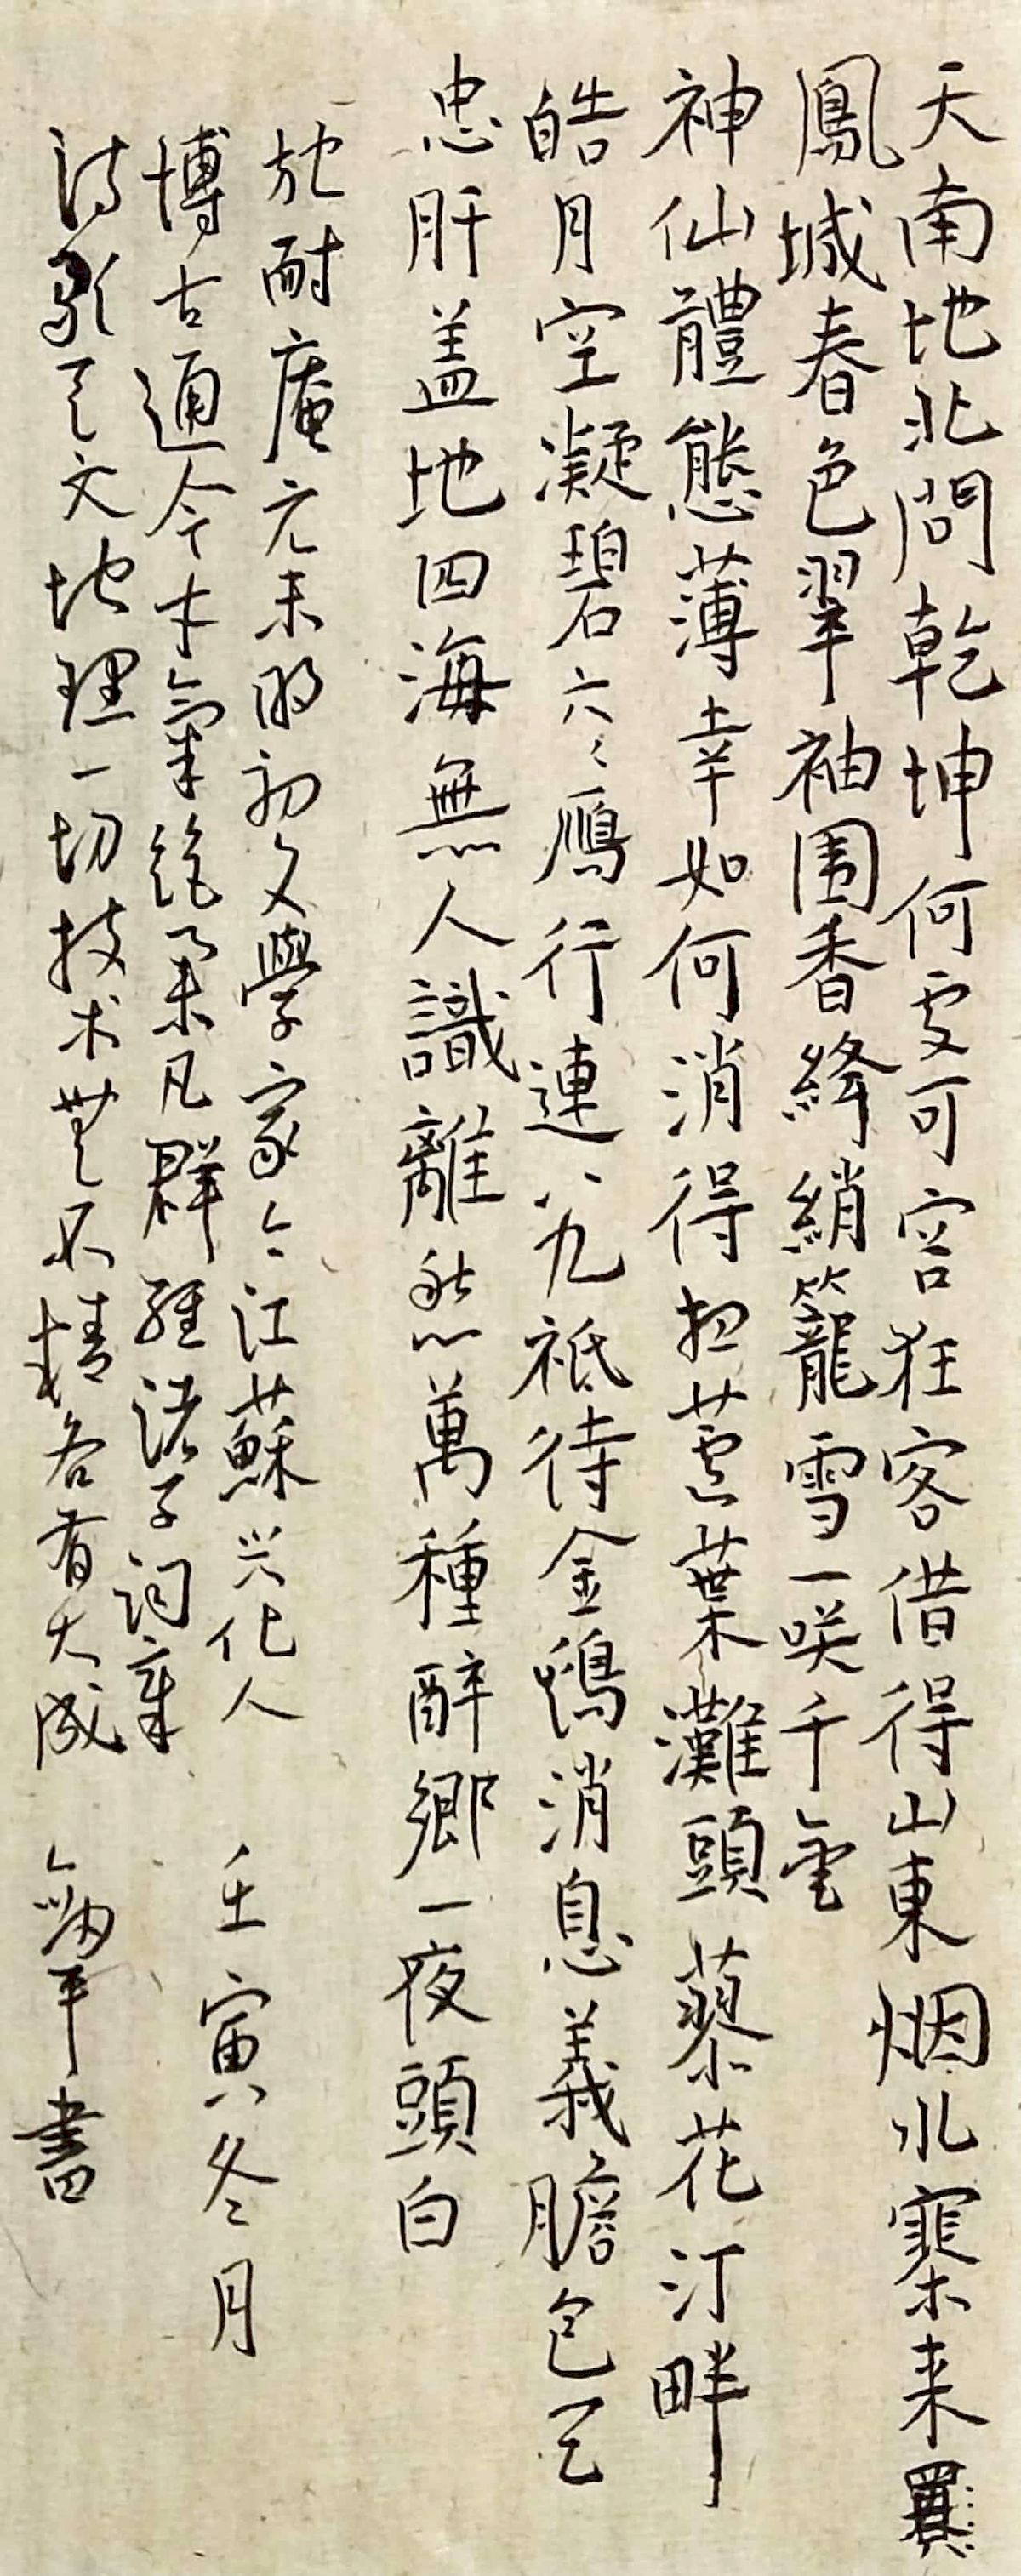 天南地北問乾坤何處可容狂客借得山東烟水寨来買
鳳城春色翠袖围香絳綃籠雪一咲千金
神仙體態薄幸如何消得想蘆葉灘頭蓼花汀畔
皓月空凝碧六六鴈行連八九祗待金鷄消息義膽包天
忠肝盖地四海無人識離愁萬種醉鄉一夜頭白
施耐庵元末明初文學家今江蘇兴化人 壬寅冬月
博古通今才氣絕羣凡群經诸子词章
诗歌天文地理一切技术無不精各有大成 書